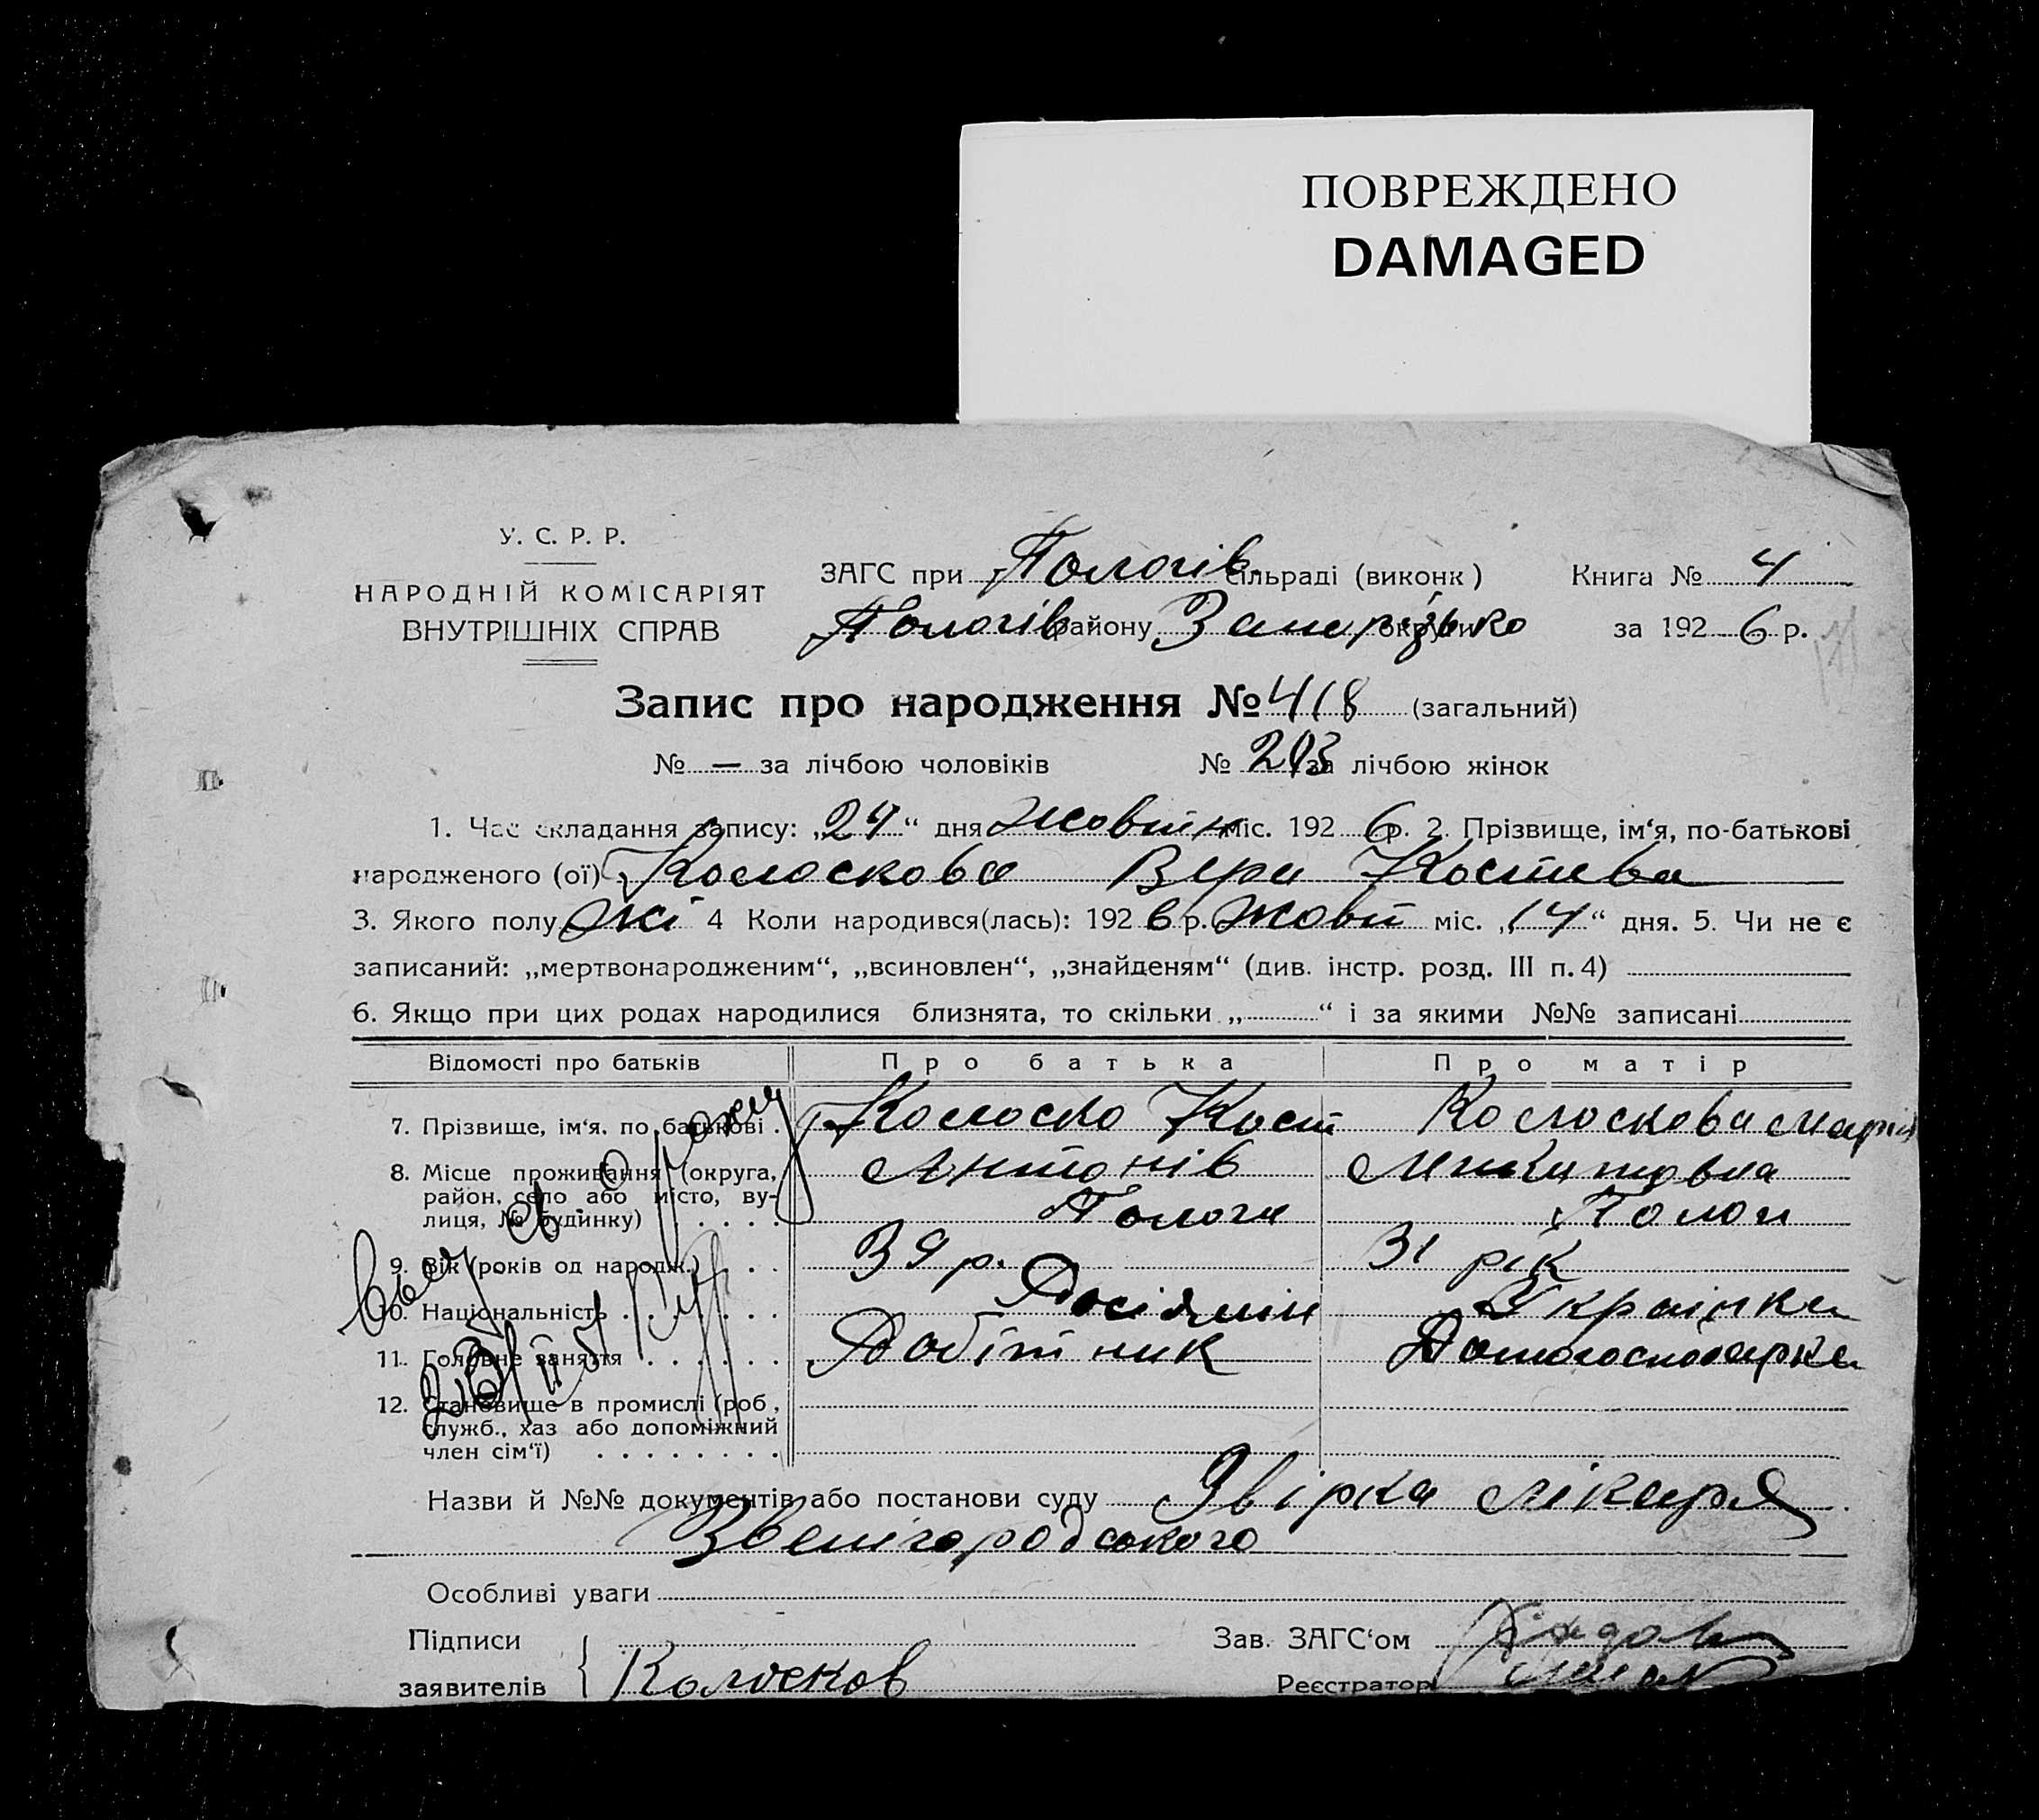 ПОВРЕЖДЕНО
DAMAGED
У. С. Р. Р.
НАРОДНІЙ КОМІСАРІЯТ
ВНУТРІШНІХ СПРАВ
ЗАГС при Пологів сільраді (виконк) Книга № 4
Пологів району Запорізько округи за 1926 р.
Запис про народження № 418 (загальний)
№ — за лічбою чоловіків № 203 за лічбою жінок
1. Час складання запису: „24“ дня Жовтн міс. 1926 р. 2. Прізвище, ім‘я, по-батькові
народженого (ої) Колоскова Вера Костева
3. Якого полу жі 4 Коли народився(лась): 1926 р. Жовт міс. „14“ дня. 5. Чи не є
записаний: „мертвонародженим“, „всиновлен“, „знайденям“ (див. інстр. розд. III п. 4)
6. Якщо при цих родах народилися близнята, то скільки „ “ і за якими №№ записані
Відомості про батьків Про батька Про матір
7. Прізвище, ім‘я. по батькові . Колоско Кост Колоскова Марія
8. Місце проживання (округа, Антонів Микитовна
район, село або місто, ву-
лиця, № будинку) . . . . . Пологи Пологи
9. Вік (років од народж.) . . . 39 р. 31 рік
10. Національність . . . . . . . Росіянін Українка
11. Головне заняття . . . . . . Робітник Домогосподарка
12. Становище в промислі (роб.,
служб., хаз або допоміжний
член сім‘ї) . . . . . . . .
Назви й №№ документів або постанови суду Звірка лікаря
Звенігородського
Особливі уваги
Підписи Зав. ЗАГС‘ом
заявителів Колосков Реєстратор